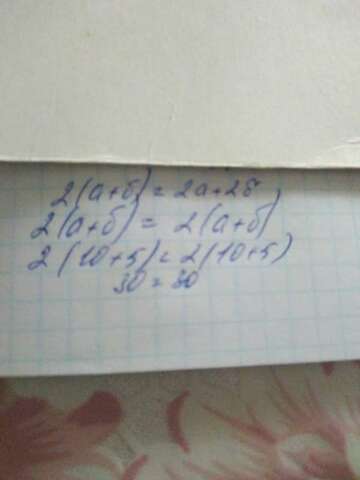 2(а+б)=2а+2б
2(а+б) = 2(а+б)
2(10+5)=2(10+5)
30=30